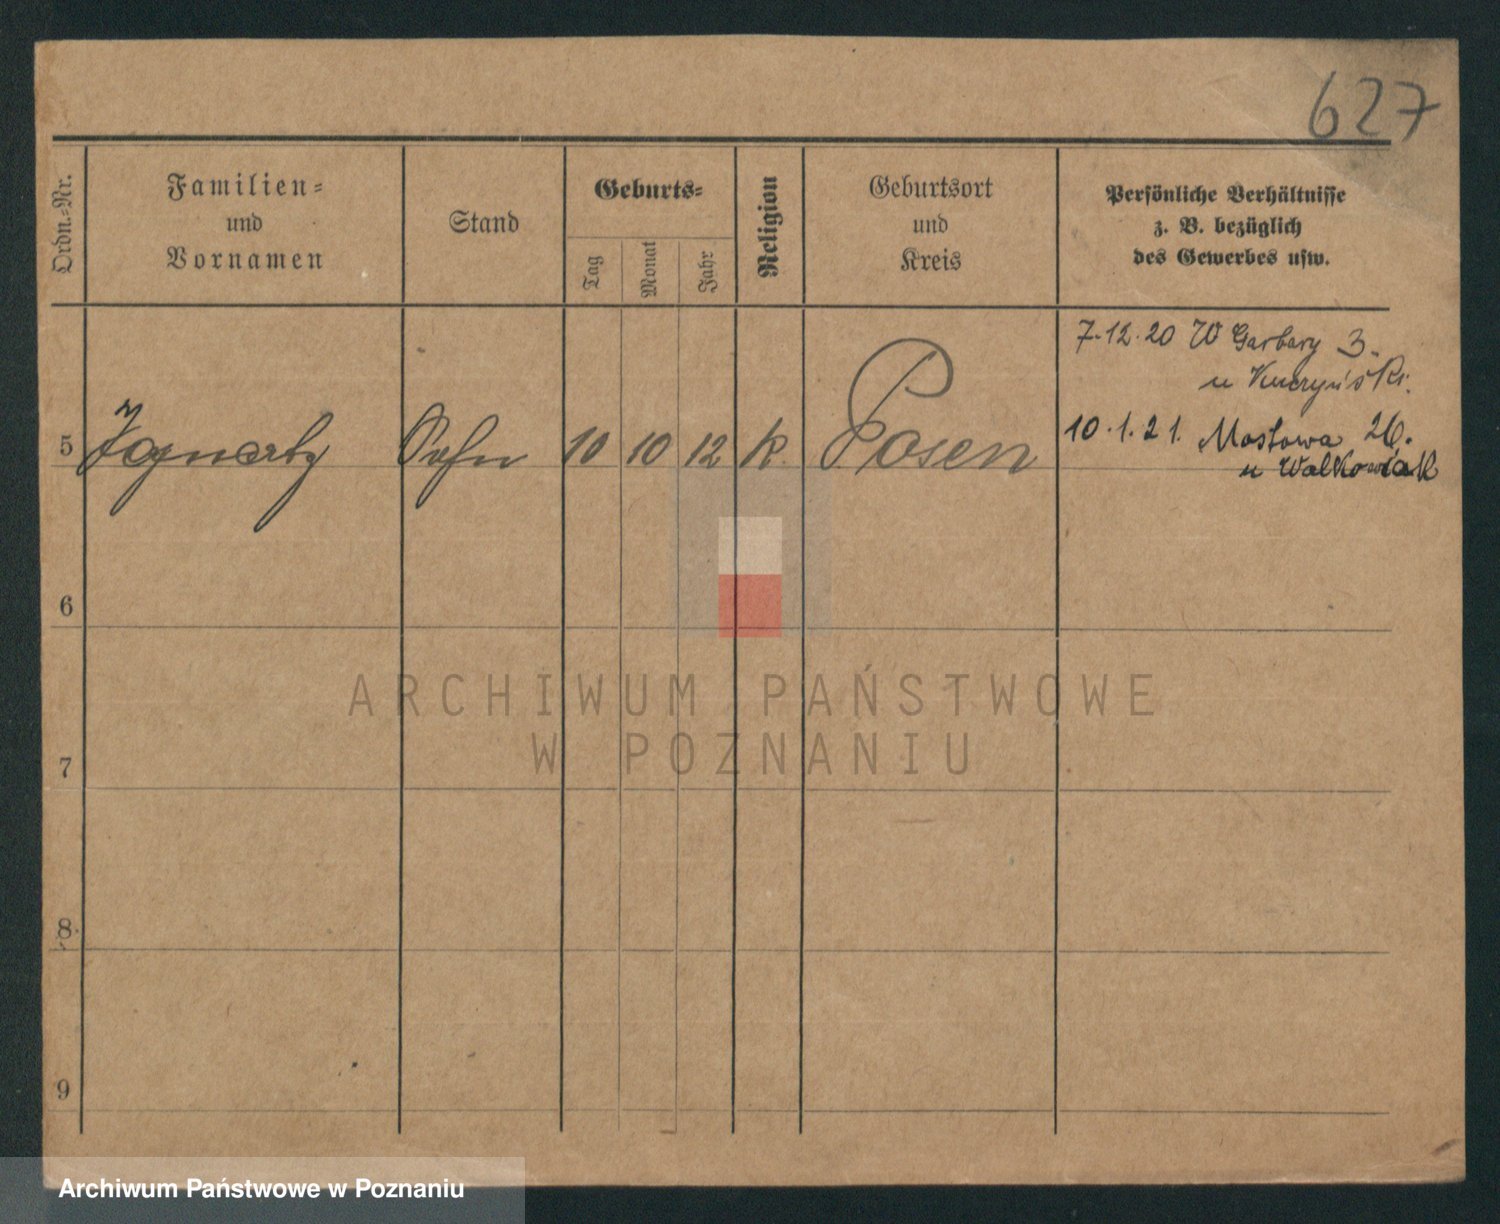 627
Ordn.-Nr.
Familien-
und
Vornamen
Stand
Geburts-
Tag
Monat
Jahr
Religion
Geburtsort
und
Kreis
Persönliche Verhältnisse
z. B. bezüglich
des Gewerbes usw.
7.12.20 W Garbary 3.
u
10.1.21. Mostowa 26.
u Walkowiak
5 Ignartz Sohn 10 10 12 k. Posen
6
7
8
9
ARCHIWUM PAŃSTWOWE
W POZNANIU
Archiwum Państwowe w Poznaniu